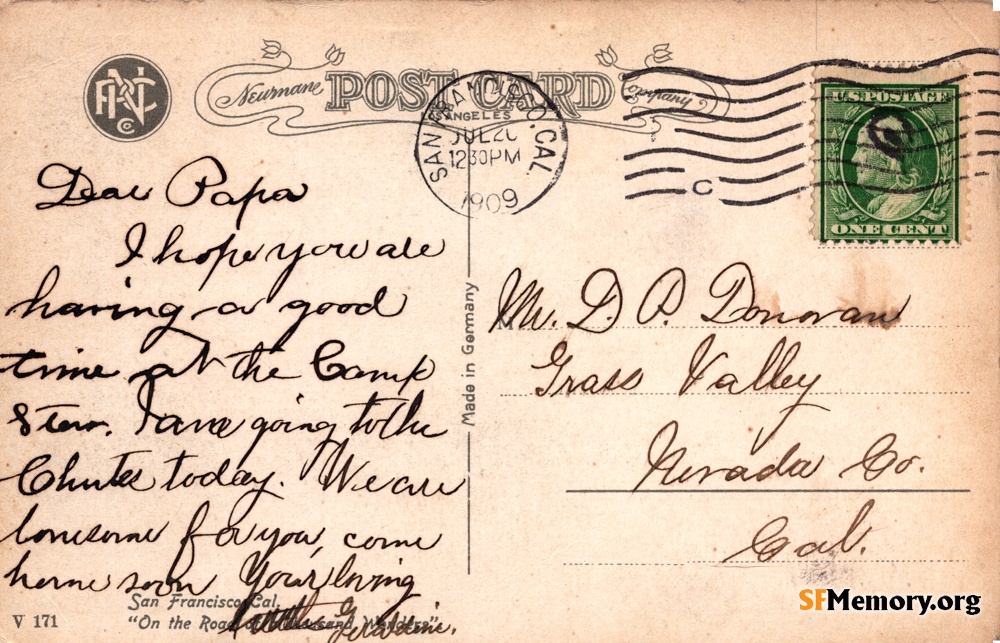 Newman POST CARD Company
SAN FRANCISCO, CAL.
ANGELES
JUL 20
12 30 PM
1909
C
U.S. POSTAGE
ONE CENT
Dear Papa
I hope you are
having a good
time at the Camp
Stew. I am going to the
Chutes today. We are
lonesome for you, come
home soon Your loving
Geraldine.
Made in Germany
Mr. D. P. Donovan
Grass Valley
Nevada Co.
Cal.
V 171
San Francisco, Cal.
"On the Road of a Thousand Wonders"
SFMemory.org